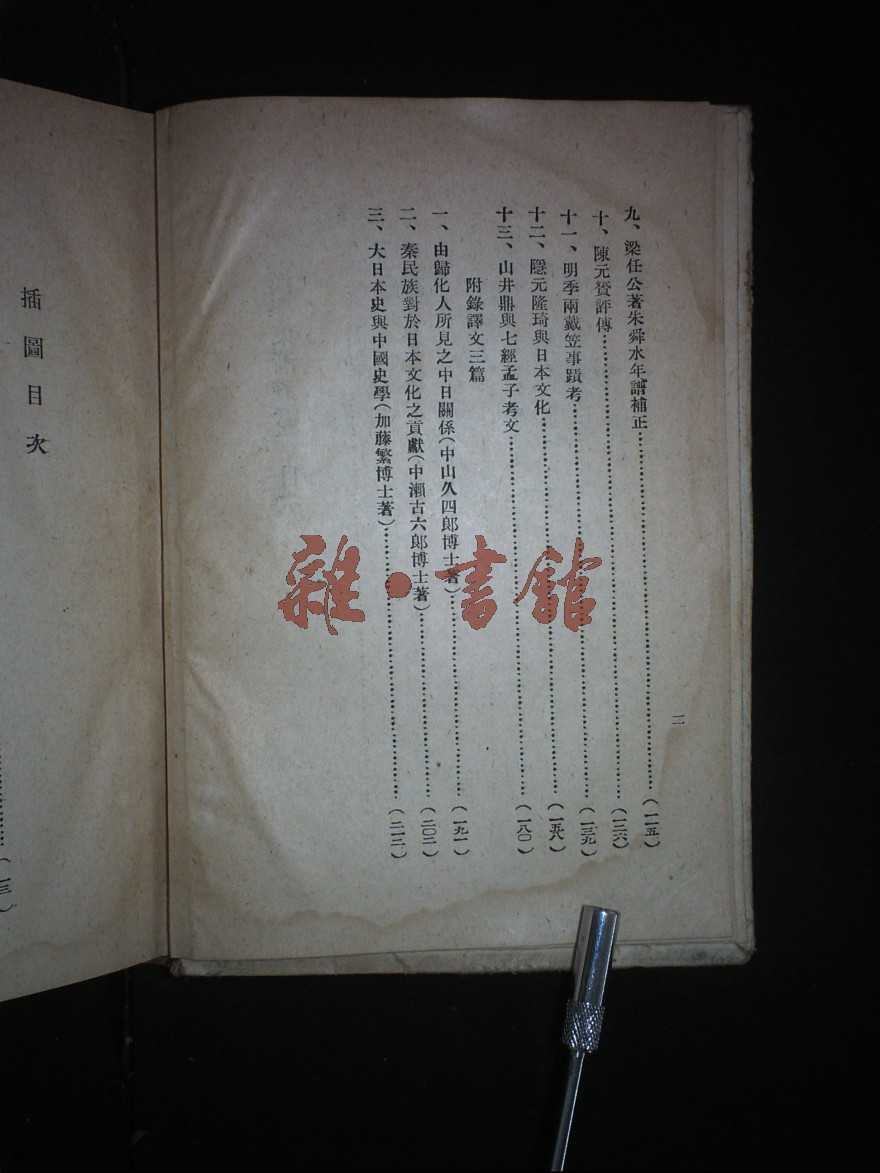 二
九、梁任公著朱舜水年譜補正……(一一五)
十、陳元贇評傳……(一二六)
十一、明季兩戴笠事蹟考……(一三九)
十二、隱元隆琦與日本文化……(一五八)
十三、山井鼎與七經孟子考文……(一八〇)
附錄譯文三篇
一、由歸化人所見之中日關係(中山久四郎博士著)……(一九一)
二、秦民族對於日本文化之貢獻(中瀨古六郎博士著)……(二〇二)
三、大日本史與中國史學(加藤繁博士著)……(二一二)
插圖目次
……(一三)
雜·書館